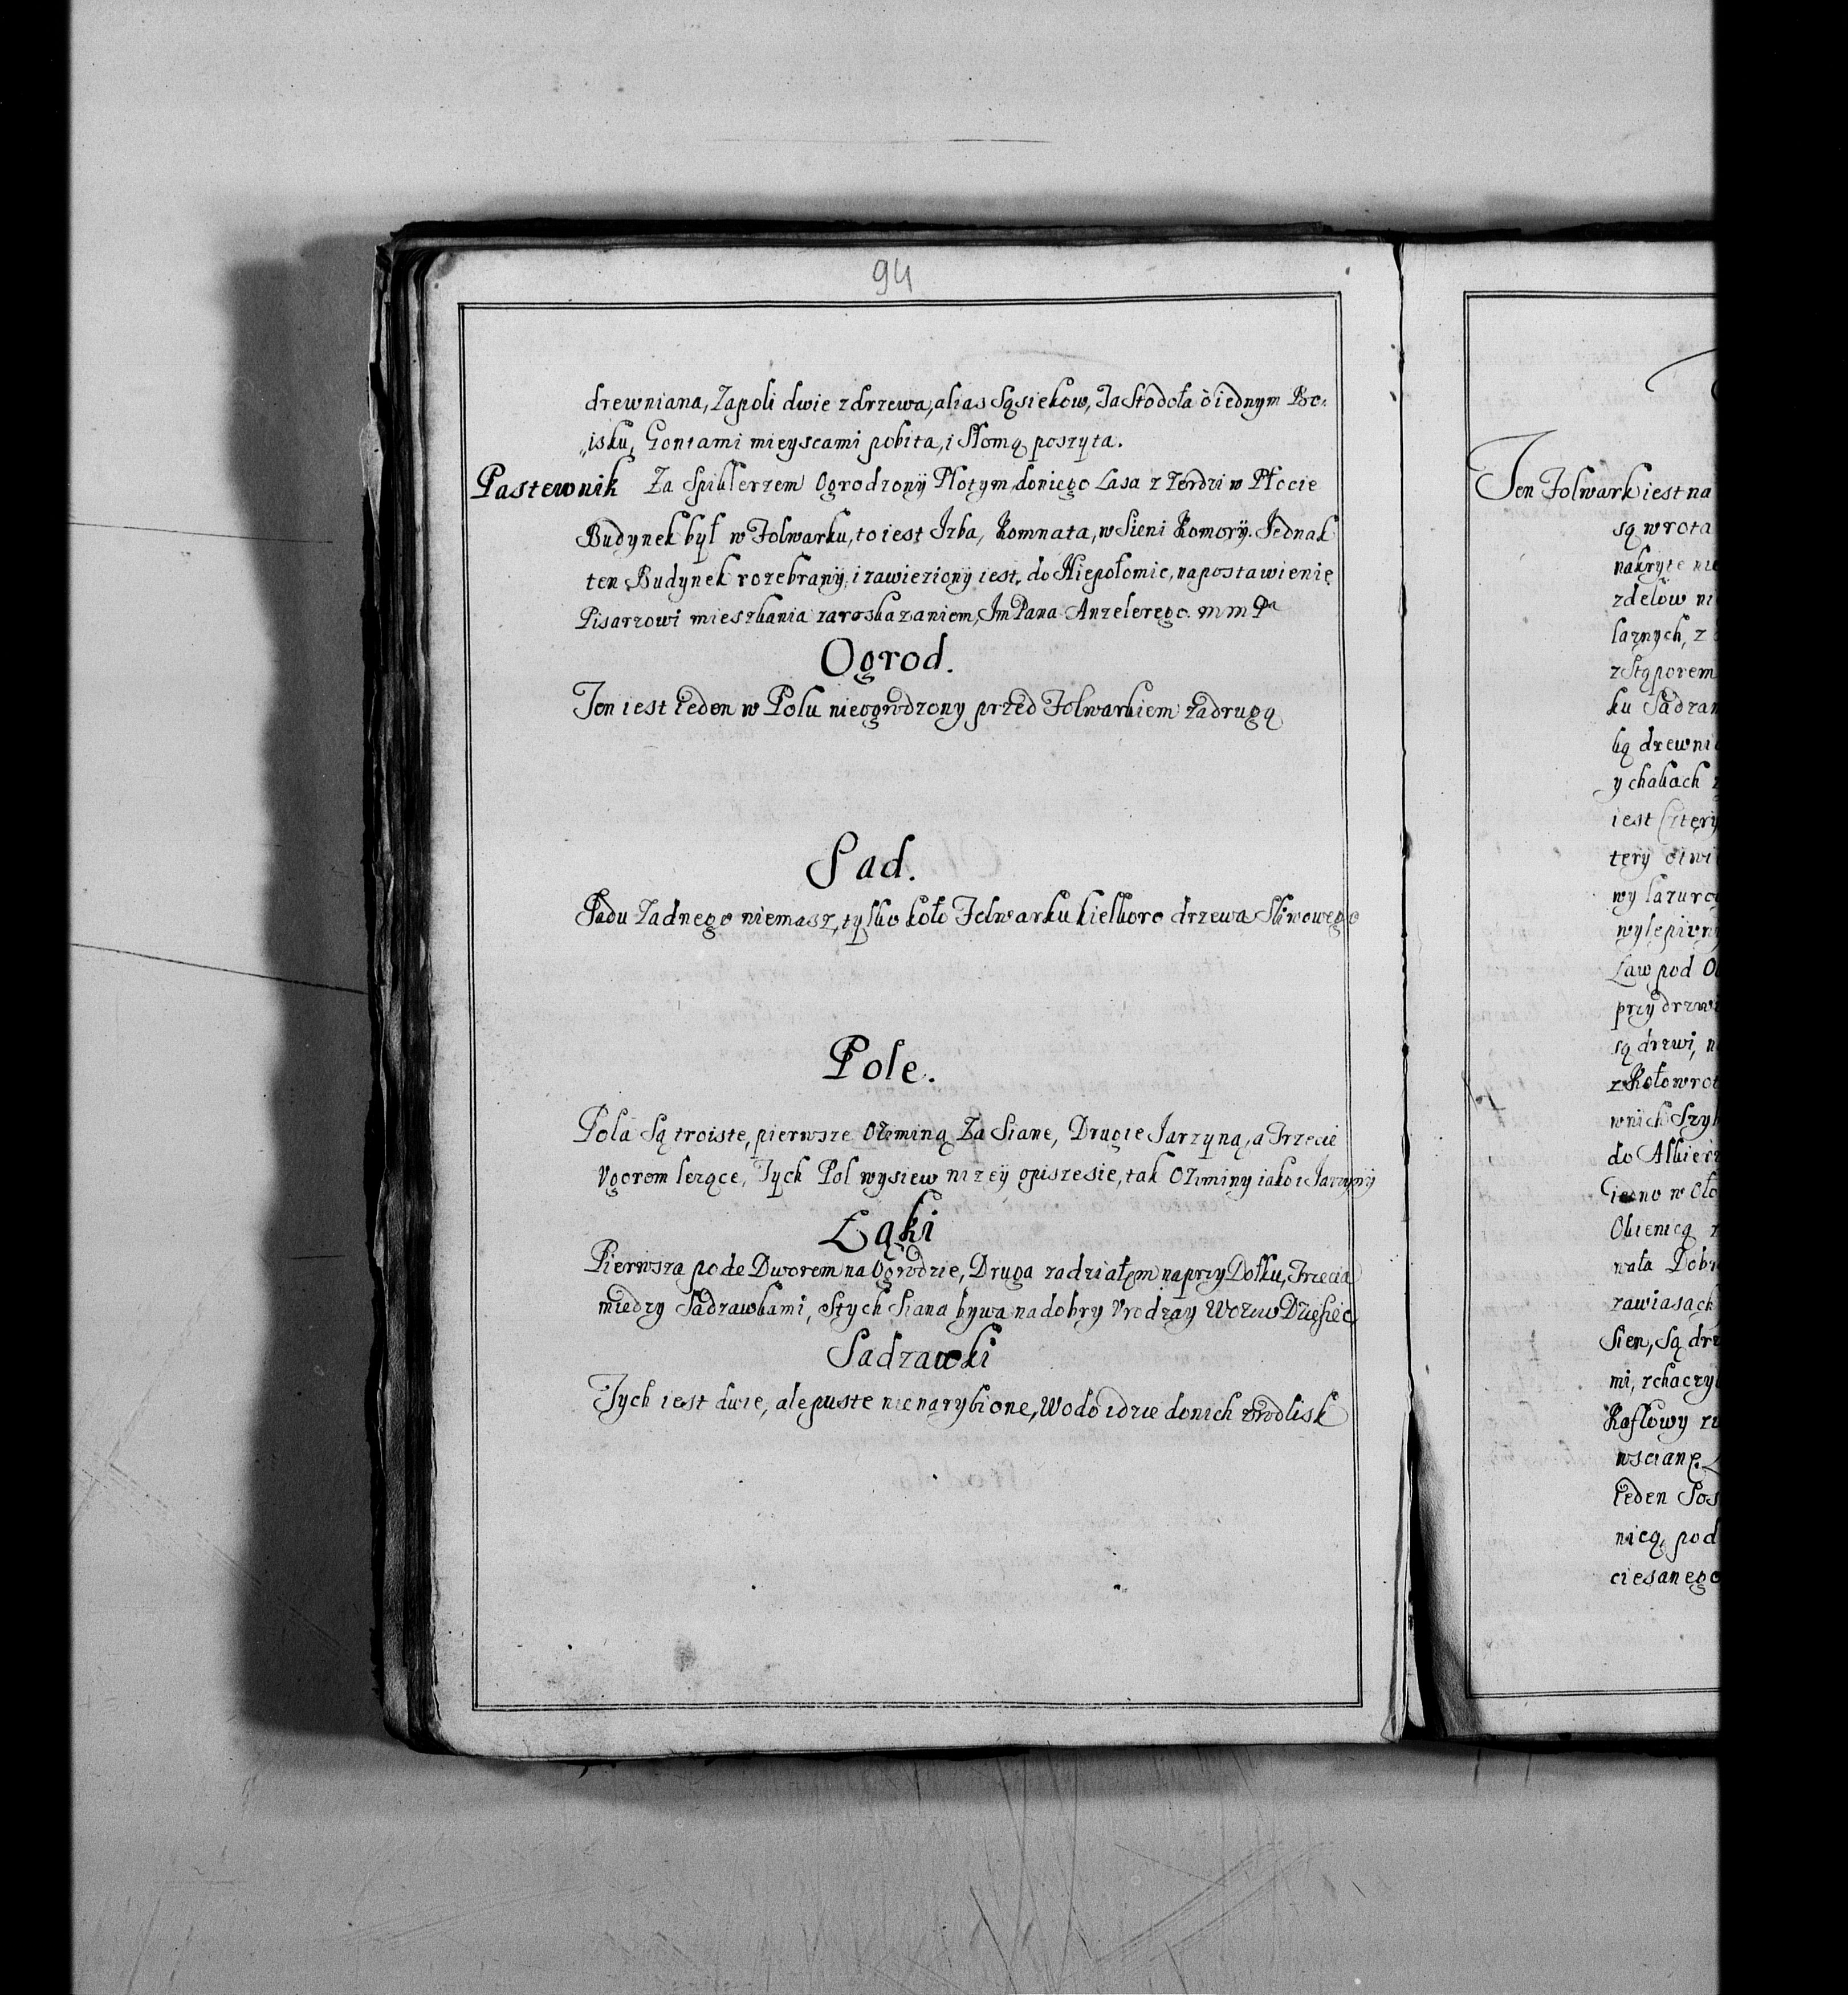 94
drewniana, Zapoli dwie z drzewa, alias Sąsiekow, Ta Stodoła o iednym Bo-
„isku, Gontami mieyscami pobita, i Słomą poszyta.
Pastewnik Za Spiklerzem Ogrodzony Płotym, do niego Lasa z Zerdzi w Płocie
Budynek był w Folwarku, to iest Izba, Komnata, w Sieni Komory. Jednak
ten Budynek rozebrany, i zawieziony iest, do Niepołomic, na postawienie
Pisarzowi mieszkania za roskazaniem, Jm Pana Anzelerego. m m Pa
Ogrod.
Ten iest ieden w Polu nieogrodzony przed Folwarkiem za drugą
Sad.
Sadu Zadnego niemasz, tylko koło Folwarku kielkoro drzewa Sliwowego
Pole.
Pola Są troiste, pierwsze Oziminą Za Siane, Drugie Jarzyną, a Trzecie
Ugorem lezące, Tych Pol wysiew nizey opisze sie, tak Oziminy iako i Jarzyny
Łąki
Pierwsza pode Dworem na Ogrodzie, Druga za działem na przy Dołku, Trzecia
miedzy Sadzawkami, Stych Siana bywa na dobry Urodzay Wozow Dziesięc
Sadzawki
Tych iest dwie, ale puste nie narybione, Wodo idzie do nich zrodlisk
Ten Folwark iest na
są wrota
nakryte nie
zdelow ni
laznych, z
z Stąporem
ku Sadzaw
ką drewni
ychakach
iest Cztery
tery
wy lazuro
wylepiony
Law pod O
przy drzwi
są drzwi, n
z Kołowrot
w nich Szyb
do Alkierz
iedno w Oło
Okienicą
wała Dobr
zawiasach
Sien, Są drz
mi, z haczy
Kaflowy
w scianę.
ieden Sos
nicą, pod
ciesanego